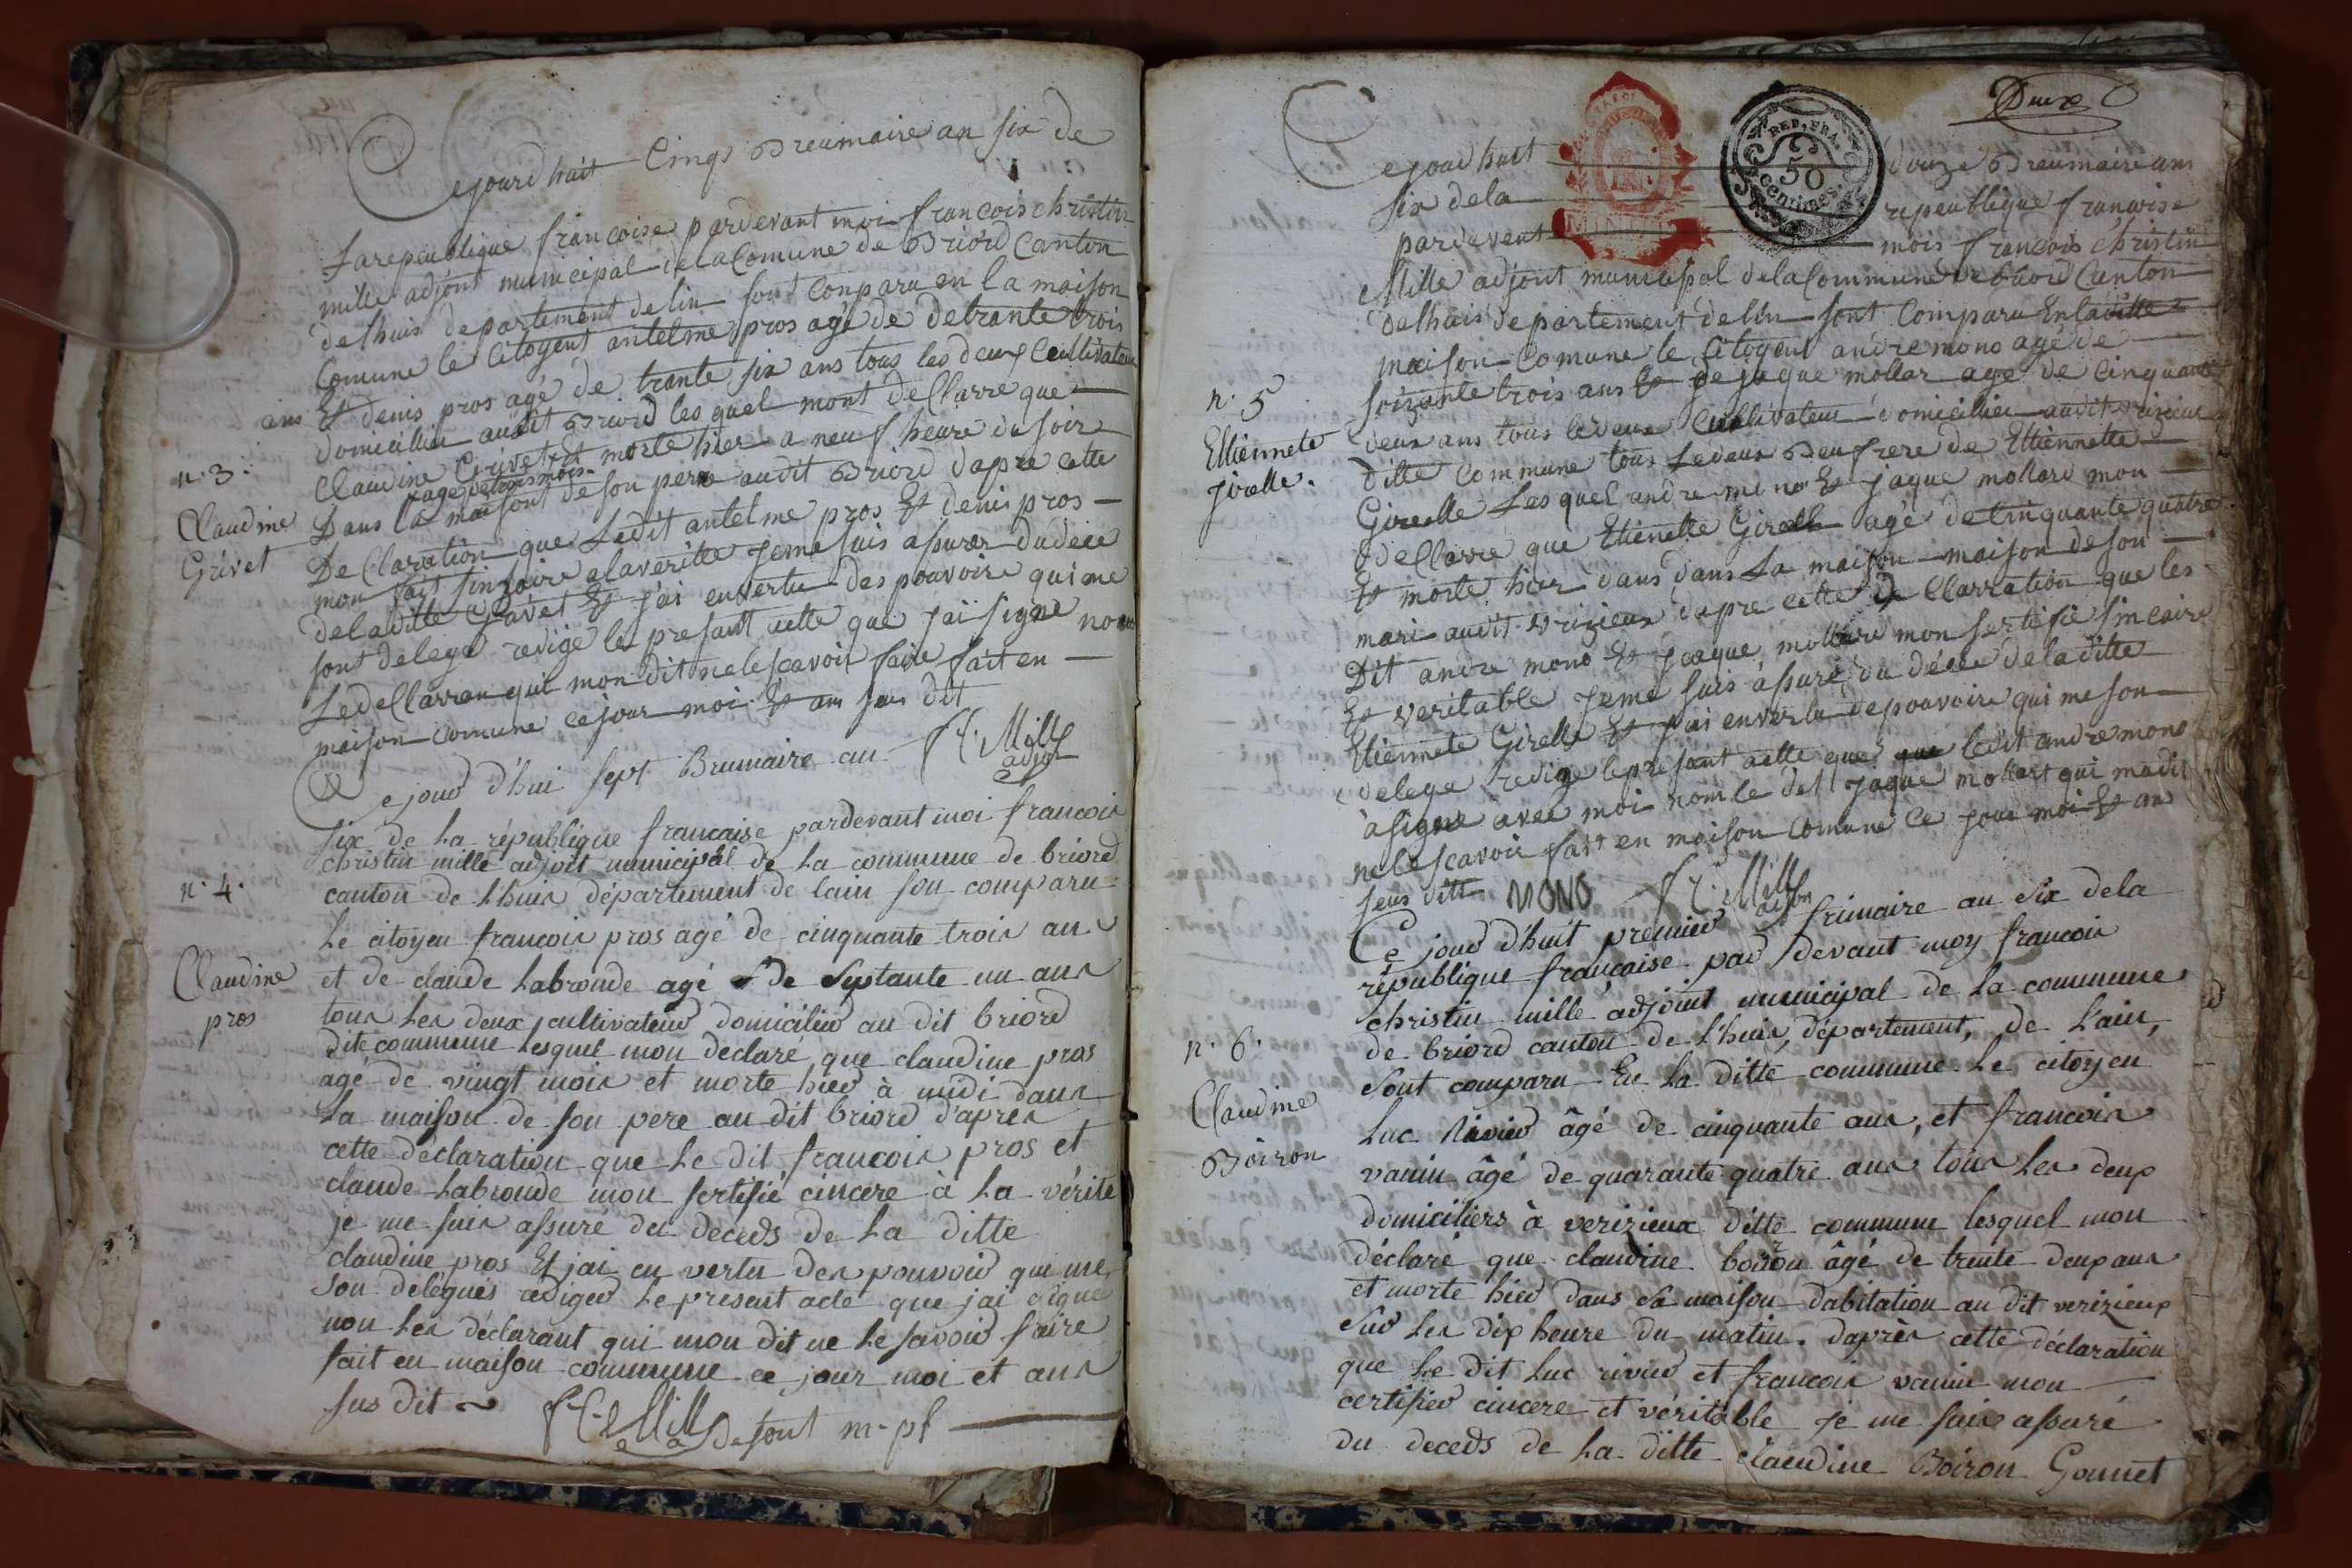 Cejourd huit Cinqs Breumaire an six de
La repeublique francoise pardevant moi francois christin
mille adjont municipal dela Comune de Briord Canton
delhuis departement delin sont Conparu en la maison
Comune le Citoyent antelme pros agé de detrante trois
ans Et denis pros agé de trante six ans tous les deux Cultivateur
domicillié audit Briord les quel mont deClarre que
n. 3.
Claudine
Grivet
Claudine Grivet Et morte hier a neuf heure du soir
agé de trois mois
Dans la maisont de son pere audit Briord dapre cette
DeClaration que Ledit antelme pros Et denis pros
mon fait sinsaire alaveritée jeme suis asurer dudece
deladitte Gravet Et jai envertu des pouvoire quime
sont delegé redige le presant aette que jai signe nom
LedeClarran qui mon dit nele scavoir faire fait en
maison comune ce jour moi Et an sus dit
F C. Mille
adjoi
Ce jour d'hui sept Brumaire an
six de la république francaise pardevant moi francois
christin mille adjoit municipal de la commune de briord
n. 4.
Claudine
pros
canton de Lhuis département de lain son comparu
le citoyen francois pros agé de cinquante trois ans
et de claude Labronde agé de Septante un ans
tous les deux cultivateur domicilier au dit briord
dite commune lesquel mon declaré que claudine pros
agé de vingt mois et morte hier à midi dans
la maison de son pere au dit briord d'après
cette déclaration que le dit francois pros et
claude Labronde mon sertifié cincere à la vérité
je me suis assuré du deceds de la ditte
claudine pros Et jai en vertu des pouvoir qui me
son délégués rediger le present acte que jai signé
non les déclarant qui mon dit ne le savoir faire
fait en maison commune ce jour moi et ans
sus dit F C. Mille m. pf
Deux
REP. FRA.
50
centimes.
Cejourd huit douze Breumaire ans
six dela repeublique francoise
pardevent mois francois christin
Mille adjont municipal dela Commune de briord Canton
delhuis departement delin sont Comparu En laditte
maison Comune le Citoyent andre mono agé de
n. 5
Ettiennete
girelle.
soizante trois ans Et de jaque mollar age de Cinquante
deux ans tous ledeux Cultivateur domicillier audit vrizieux
ditte Commune tous Ledeux Beufrere de Ettiennette
Girelle Les quel andre mono Et jaque mollard mon
deClarre que Etiennette Girelle agé de Cinquante quatre
Et morte hier dans dans La maison maison de son
mari audit vrizieux dapre cette deClarration que les
Dit andre mono Et jcaque mollare mon sertifie sincaire
Et veritable jeme suis assuré du décée deladitte
Etiennete Girelle Et jai envertu depouvoire qui me son
delege redige le presant aette que que ledit andre mono
asigne avec moi nomle det jaque mollart qui madit
nele scavoir fait en maison Comune ce jour moi Et an
seus ditt MONO F C. Mille
adjoi
Ce jour d'huit premier frimaire an Six dela
république française par devant moy francois
christin mille adjoint municipal de la commune
n. 6.
Claudine
Boiron
de briord canton de l'huis, département, de l'ain,
sont comparu En la ditte commune le citoyen
Luc Rivier âgé de cinquante ans, et francois
vanin âgé de quarante quatre ans tous les deux
domiciliers à verizieux ditte commune lesquel mon
déclaré que claudine boiron âgé de trente deux ans
et morte hier dans sa maison d'abitation au dit verizieux
sur les dix heure du matin. d'après cette déclaration
que le dit Luc rivier et francois vanin mon
certifier cincere et véritable je me suis assuré
du deceds de la ditte claudine Boiron Gonnet